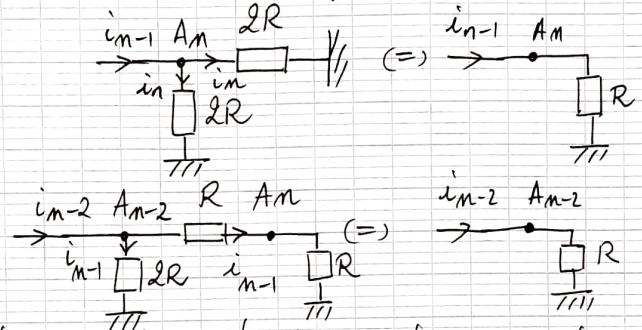 i_{n-1} A_n 2R
i_n i_n 2R
(=) i_{n-1} A_n
R
i_{n-2} A_{n-2} R A_n
i_{n-1} 2R i_{n-1} R
(=) i_{n-2} A_{n-2}
R